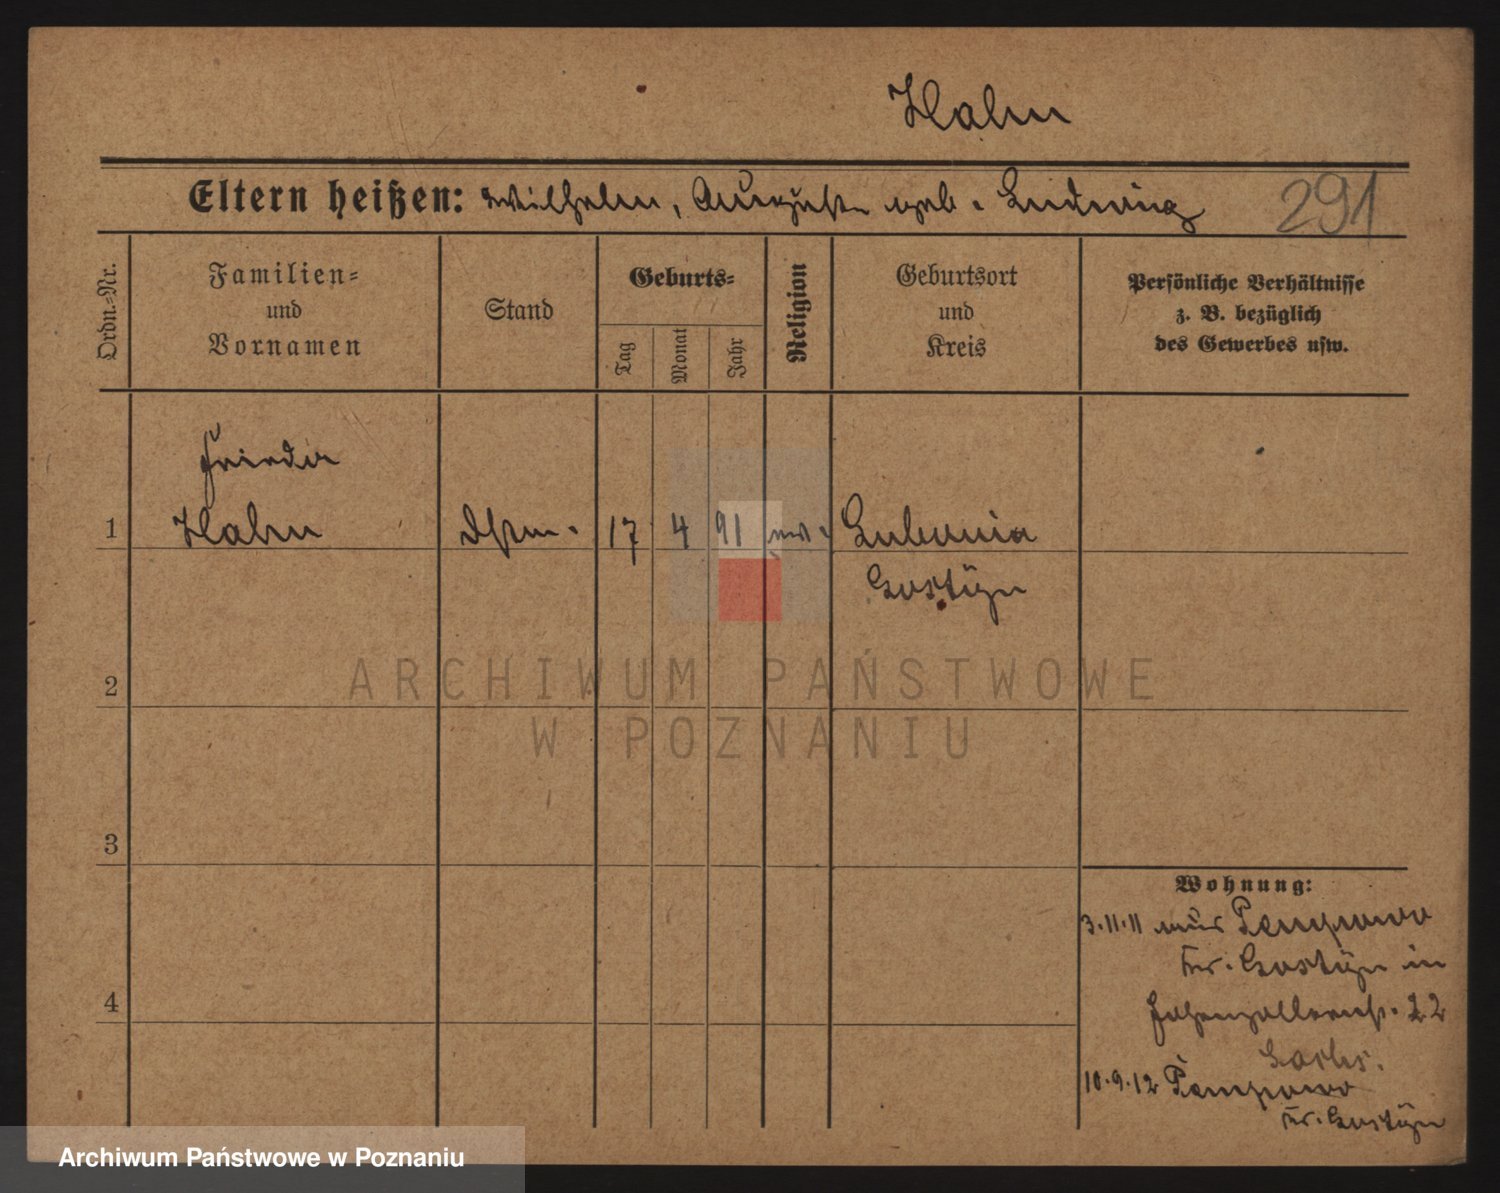 Hahn
Eltern heißen: Wilhelm, Auguste geb. Ludwig 291
Ordn.-Nr.
Familien-
und
Vornamen
Stand
Geburts-
Tag
Monat
Jahr
Religion
Geburtsort
und
Kreis
Persönliche Verhältnisse
z. B. bezüglich
des Gewerbes usw.
Frieda
1 Hahn Dstm. 17 4 91 ev.
Gostÿn
2
3
4
Wohnung:
3.11.11 aus Pempowo
Kr. Gostÿn in
Hohenzollernst. 22
10.9.12 Pempowo
Kr. Gostÿn
ARCHIWUM PAŃSTWOWE
W POZNANIU
Archiwum Państwowe w Poznaniu